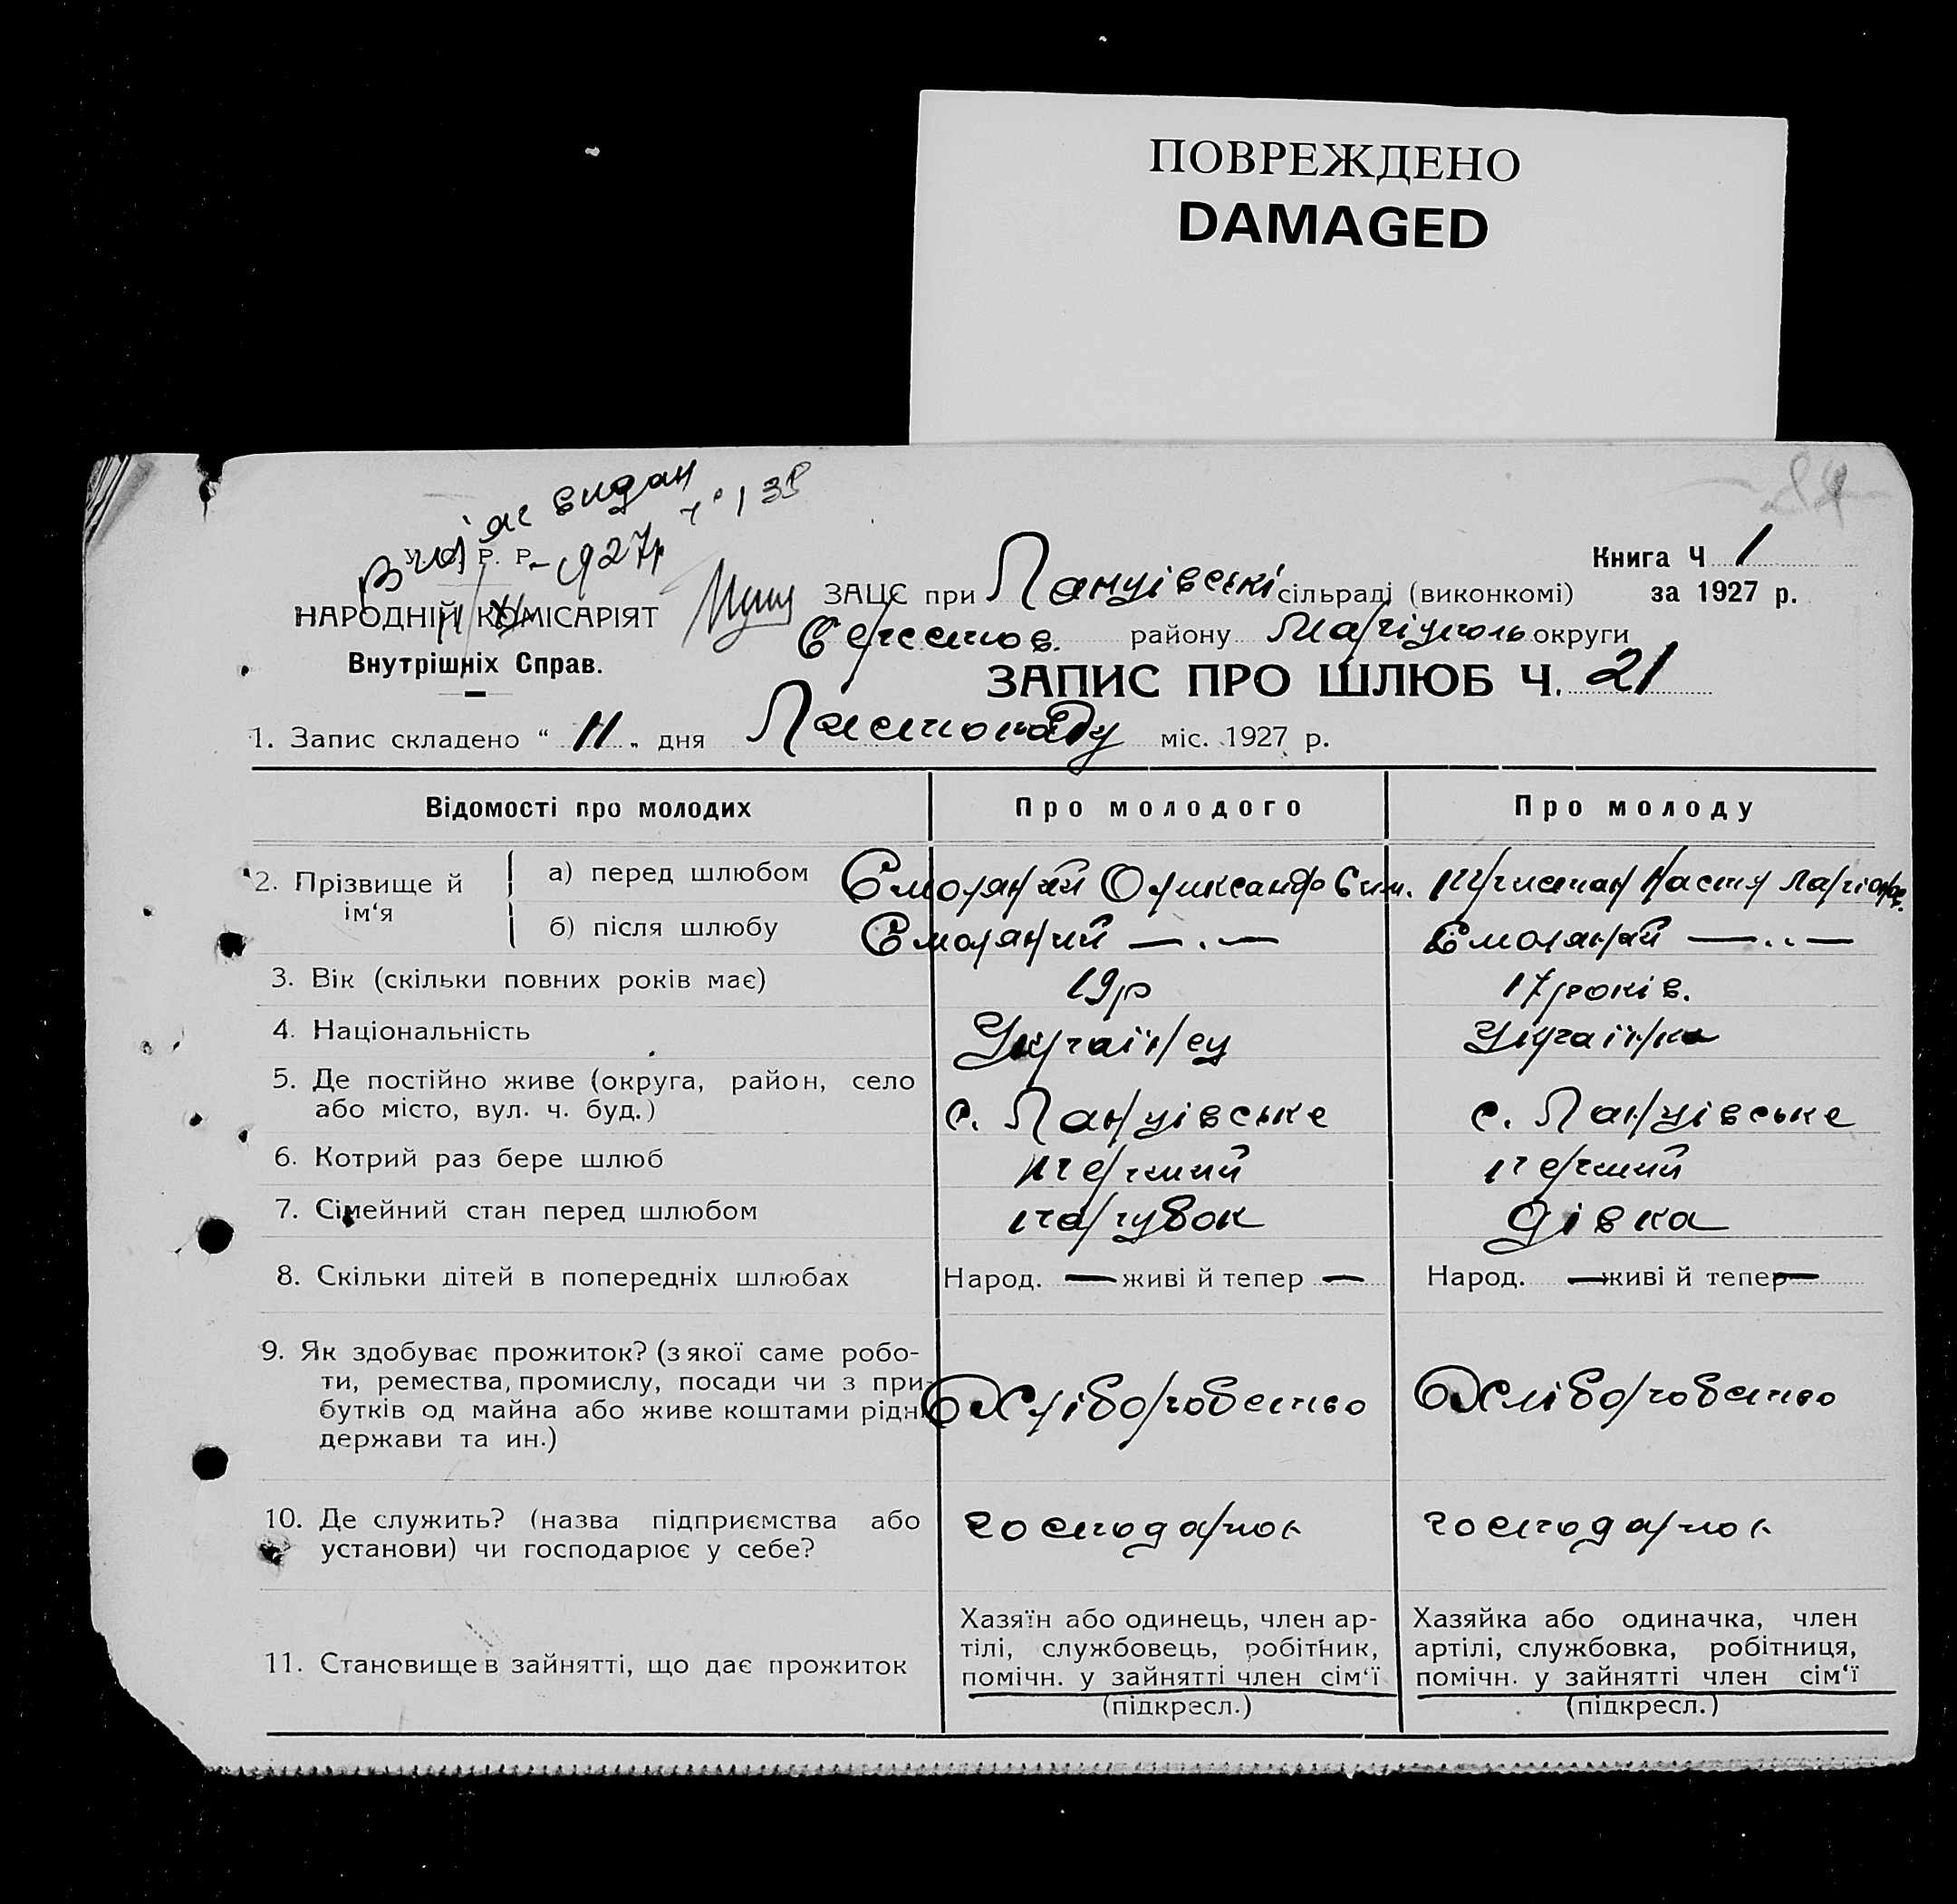 ПОВРЕЖДЕНО
DAMAGED
видан
У. С. Р. Р. 1927р
Книга Ч 1
НАРОДНІЙ КОМІСАРІЯТ
ЗАЦС при Ланцівські сільраді (виконкомі)
за 1927 р.
району Маріуполь округи
Внутрішніх Справ.
ЗАПИС ПРО ШЛЮБ Ч. 21
1. Запис складено “ 11 „ дня Листопаду міс. 1927 р.
Відомості про молодих
Про молодого
Про молоду
2. Прізвище й ім‘я
а) перед шлюбом
Смоляний Олександр Сим.
Настя
б) після шлюбу
Смоляний —.—
Смоляний —..—
3. Вік (скільки повних років має)
19р
17 років.
4. Національність
Українец
Українка
5. Де постійно живе (округа, район, село
або місто, вул. ч. буд.)
с. Ланцівське
с. Ланцівське
6. Котрий раз бере шлюб
перший
перший
7. Сімейний стан перед шлюбом
парубок
дівка
8. Скільки дітей в попередніх шлюбах
Народ. — живі й тепер —
Народ. — живі й тепер —
9. Як здобуває прожиток? (з якої саме робо-
ти, ремества, промислу, посади чи з при-
бутків од майна або живе коштами рідн
держави та ин.)
Хліборобство
Хліборобство
10. Де служить? (назва підприємства або
установи) чи господарює у себе?
господарює
господарює
11. Становище в зайнятті, що дає прожиток
Хазяїн або одинець, член ар-
тілі, службовець, робітник,
помічн. у зайнятті член сім‘ї
(підкресл.)
Хазяйка або одиначка, член
артілі, службовка, робітниця,
помічн. у зайнятті член сім‘ї
(підкресл.)